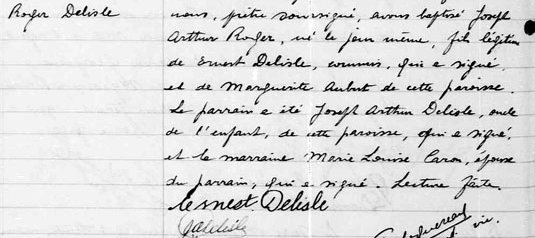 Roger Delisle
nous, prêtre soussigné, avons baptisé Joseph
Arthur Roger, né le jour même, fils légitime
de Ernest Delisle, commis, qui a signé
et de Marguerite Aubert de cette paroisse.
Le parrain a été Joseph Arthur Delisle, oncle
de l'enfant, de cette paroisse, qui a signé,
et la marraine Marie Louise Caron, épouse
du parrain, qui a signé. Lecture faite.
Ernest Delisle
JADelisle
vic.